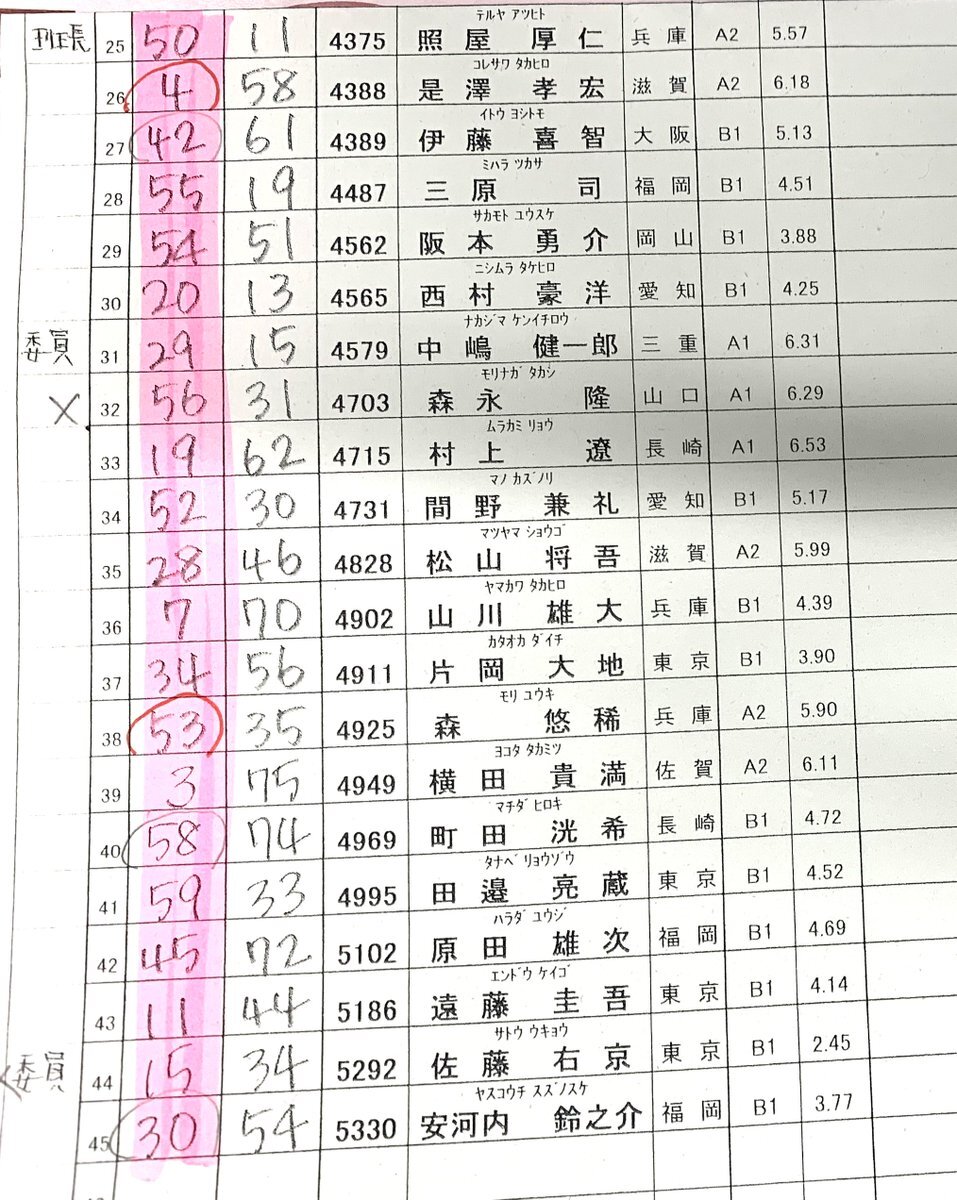 テルヤ アツヒト
班長 25 50 11 4375 照屋 厚仁 兵庫 A2 5.57
コレサワ タカヒロ
26 4 58 4388 是澤 孝宏 滋賀 A2 6.18
イトウ ヨシトモ
27 42 61 4389 伊藤 喜智 大阪 B1 5.13
ミハラ ツカサ
28 55 19 4487 三原 司 福岡 B1 4.51
サカモト ユウスケ
29 54 51 4562 阪本 勇介 岡山 B1 3.88
ニシムラ タケヒロ
30 20 13 4565 西村 豪洋 愛知 B1 4.25
ナカジマ ケンイチロウ
委員 31 29 15 4579 中嶋 健一郎 三重 A1 6.31
モリナガ タカシ
× 32 56 31 4703 森永 隆 山口 A1 6.29
ムラカミ リョウ
33 19 62 4715 村上 遼 長崎 A1 6.53
マノ カズノリ
34 52 30 4731 間野 兼礼 愛知 B1 5.17
マツヤマ ショウゴ
35 28 46 4828 松山 将吾 滋賀 A2 5.99
ヤマカワ タカヒロ
36 7 70 4902 山川 雄大 兵庫 B1 4.39
カタオカ ダイチ
37 34 56 4911 片岡 大地 東京 B1 3.90
モリ ユウキ
38 53 35 4925 森 悠稀 兵庫 A2 5.90
ヨコタ タカミツ
39 3 75 4949 横田 貴満 佐賀 A2 6.11
マチダ ヒロキ
40 58 74 4969 町田 洸希 長崎 B1 4.72
タナベ リョウゾウ
41 59 33 4995 田邉 亮蔵 東京 B1 4.52
ハラダ ユウジ
42 45 72 5102 原田 雄次 福岡 B1 4.69
エンドウ ケイゴ
43 11 44 5186 遠藤 圭吾 東京 B1 4.14
サトウ ウキョウ
委員 44 15 34 5292 佐藤 右京 東京 B1 2.45
ヤスコウチ スズノスケ
45 30 54 5330 安河内 鈴之介 福岡 B1 3.77